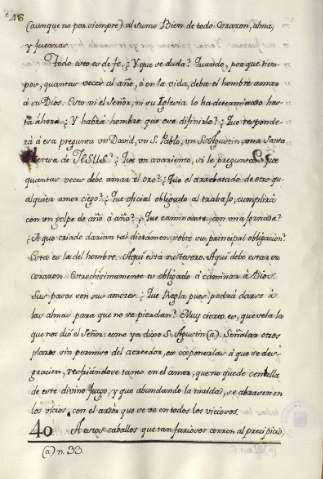 (aunque no por siempre) al sumo Bien de todo corazon, alma,
y fuerzas.
Todo esto es de fe. ¿Y que se duda? Quando, por que tiem-
po, quantas veces al año, ó en la vida, deba el hombre amar
á su Dios. Esto ni el Señor, ni su Iglesia lo ha determinado has-
ta ahora. ¿Y habrá hombre que ose difinirlo? ¿Que responde-
rá á esa pregunta un David, un S. Pablo, un S. Agustin, una Santa
Teresa de JESUS? ¿Que un avariento, si le preguntas que
quantas veces debe amar el oro? ¿Que el arrebatado de otro qu-
alquiera amor ciego? ¿Que oficial obligado al trabajo, cumplirá
con un golpe de año á año? ¿Que caminante con una jornada?
¿A que criado darian tal dictamen sobre su principal obligacion?
Esta es la del hombre. Aqui está su tesoro. Aqui debe estar su
corazon. Estrechisimamente es obligado á caminar á Dios.
Sus pasos son sus amores. ¿Que Regla pues podrá darse á
las almas para que no se pierdan? Muy cierto es, que sola la
que nos dió el Señor: como ya dixo S. Agustin (a). Señalar otros
plazos sin permiso del acreedor, es cooperar á que se des-
gracien, resfriándose tanto en el amor, que no quede centella
de este divino fuego, y que abundando la maldad, se abrasen en
los vicios, con el ardor que se ve en todos los viciosos.
40 A estos caballos que tan furiosos corren al precipicio,
(a) n. 33.